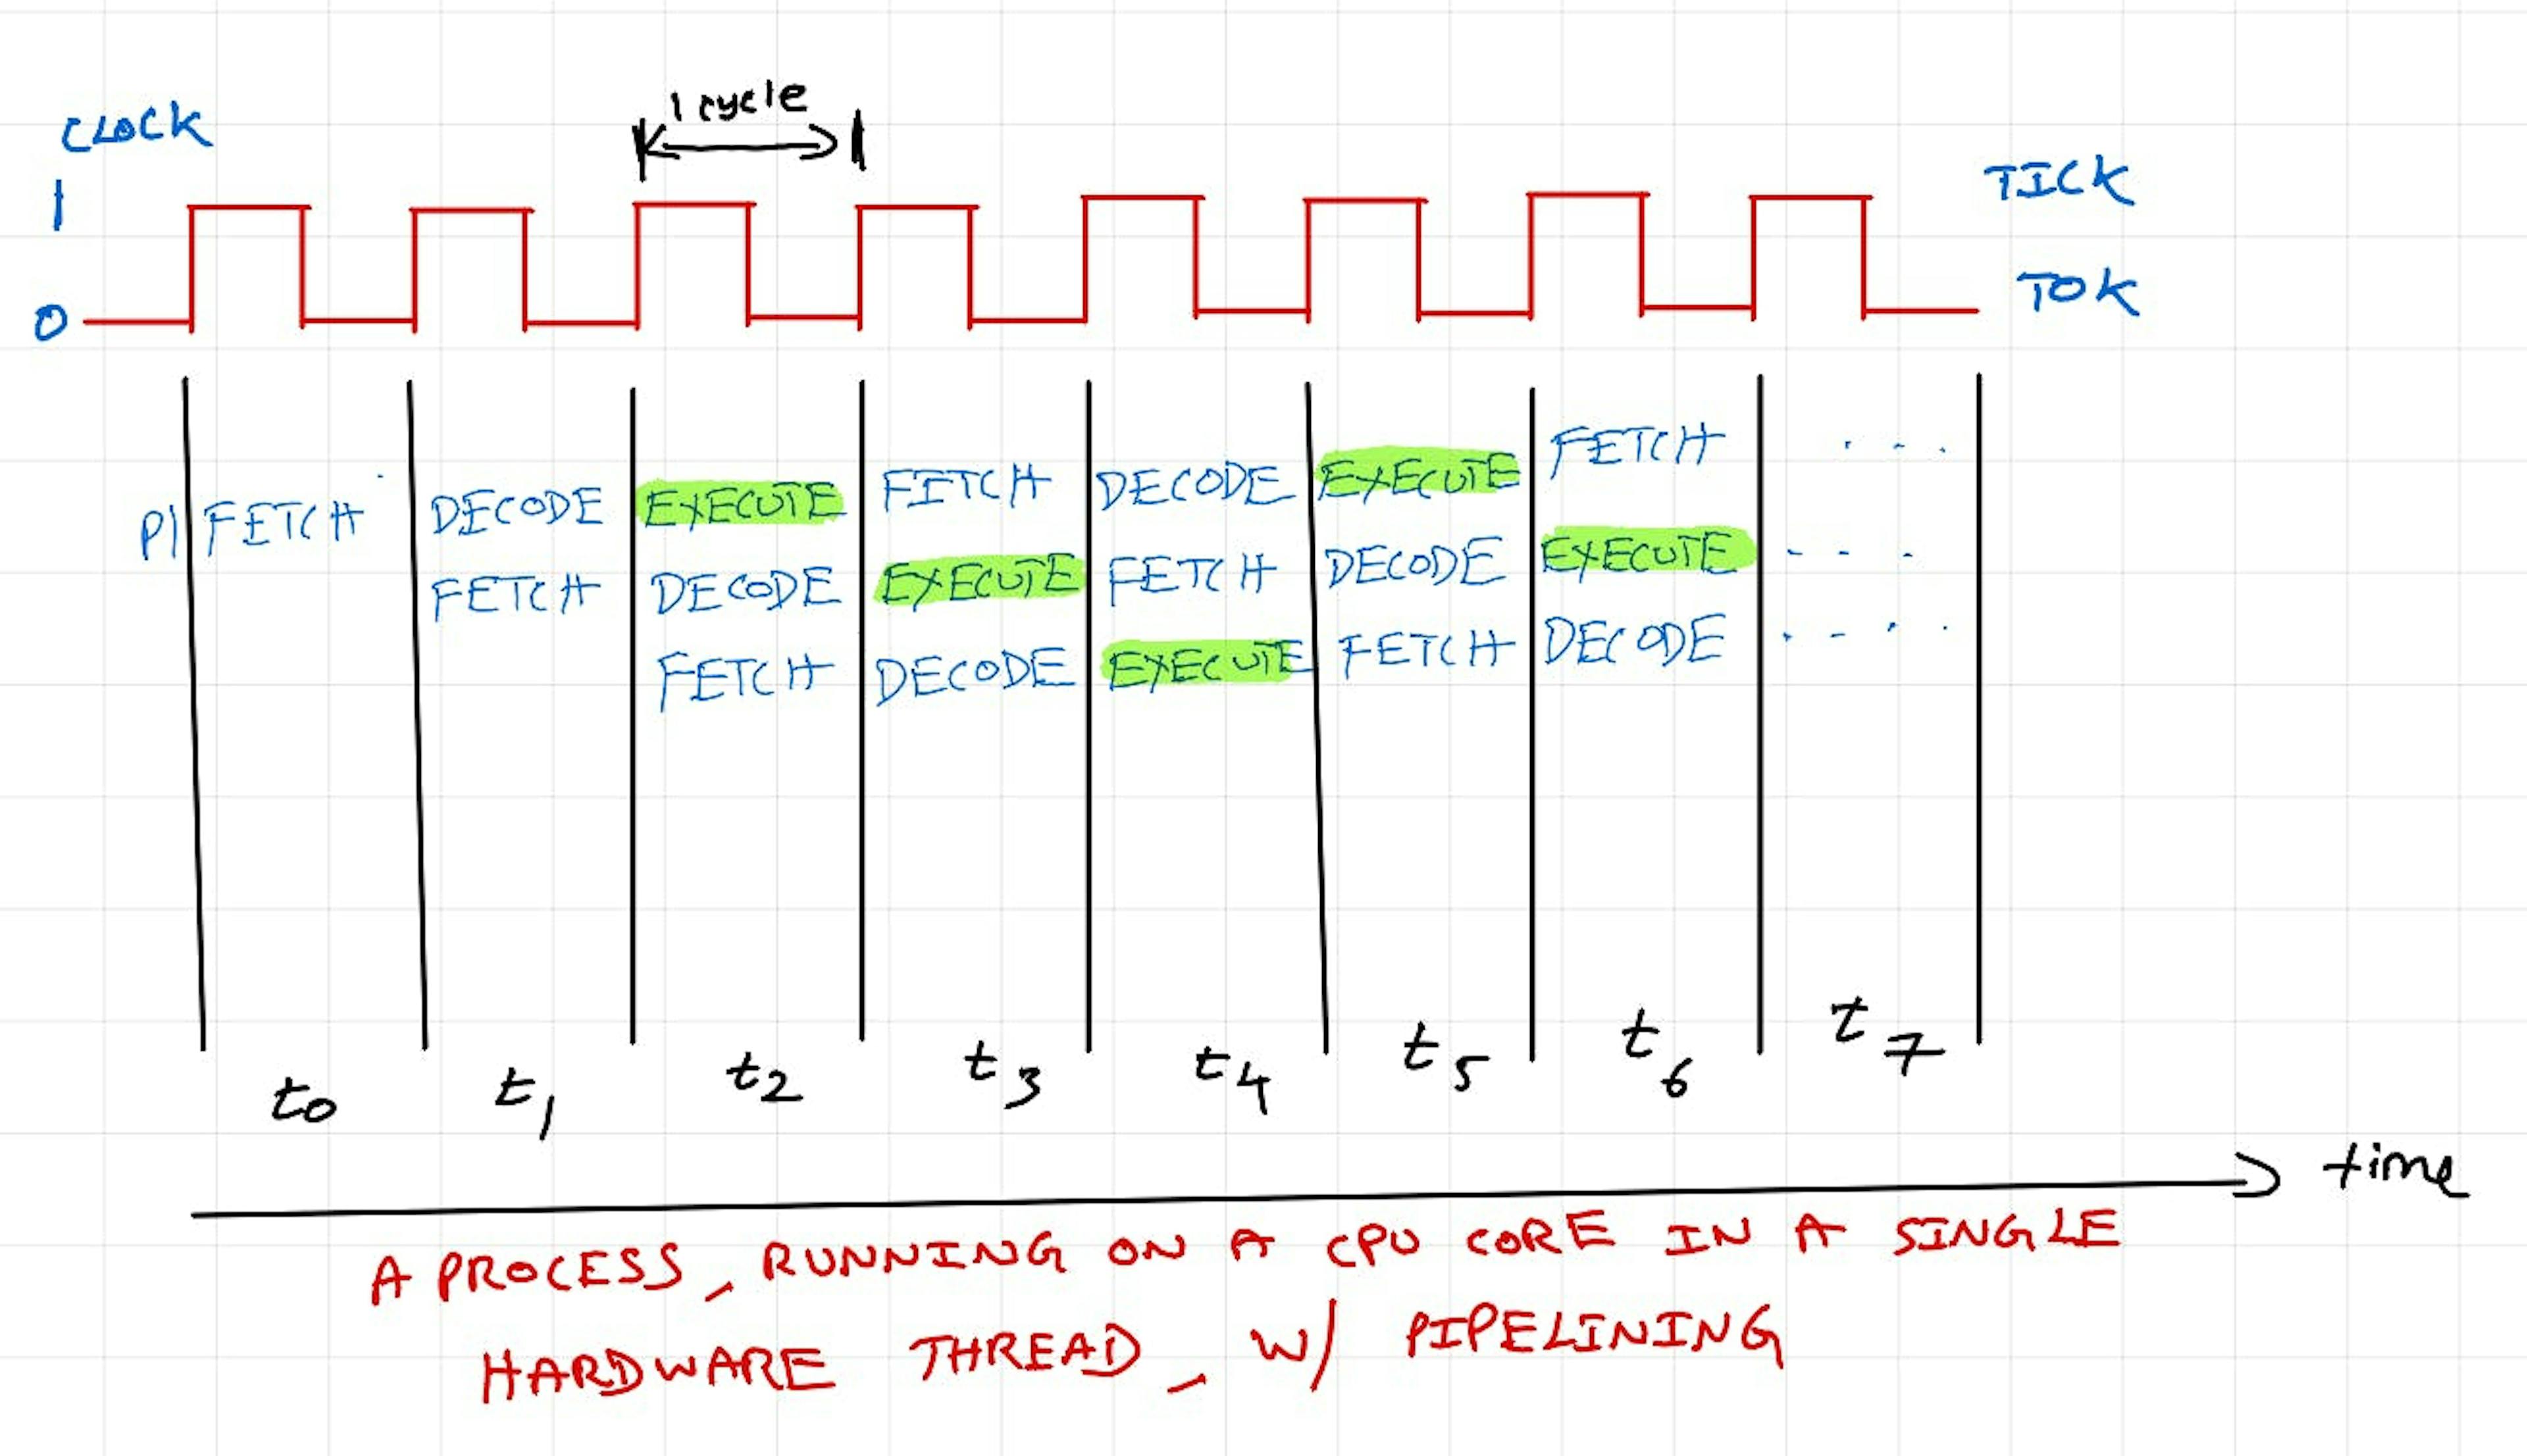 1 cycle
CLOCK
1
TICK
0
TOK
P1 FETCH DECODE EXECUTE FETCH DECODE EXECUTE FETCH . . .
FETCH DECODE EXECUTE FETCH DECODE EXECUTE - - .
FETCH DECODE EXECUTE FETCH DECODE . - . .
t0 t1 t2 t3 t4 t5 t6 t7
time
A PROCESS, RUNNING ON A CPU CORE IN A SINGLE
HARDWARE THREAD, W/ PIPELINING